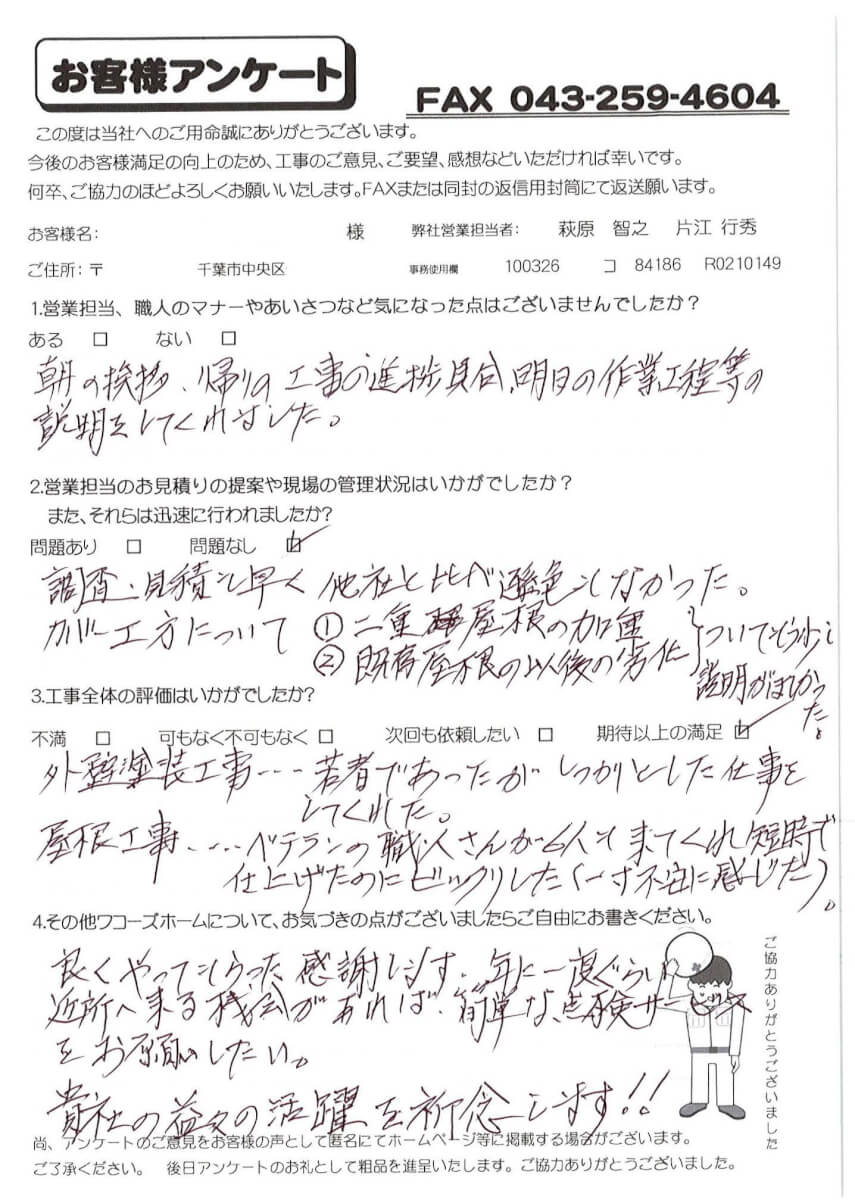 お客様アンケート
FAX 043-259-4604
この度は当社へのご用命誠にありがとうございます。
今後のお客様満足の向上のため、工事のご意見、ご要望、感想などいただければ幸いです。
何卒、ご協力のほどよろしくお願いいたします。FAXまたは同封の返信用封筒にて返送願います。
お客様名: 様 弊社営業担当者: 萩原 智之 片江 行秀
ご住所:〒 千葉市中央区 事務使用欄 100326 コ 84186 R0210149
1.営業担当、職人のマナーやあいさつなど気になった点はございませんでしたか?
ある □ ない □
朝の挨拶、帰りの工事の進捗具合、明日の作業工程等の
説明をしてくれました。
2.営業担当のお見積りの提案や現場の管理状況はいかがでしたか?
また、それらは迅速に行われましたか?
問題あり □ 問題なし ☑
調査・見積も早く他社と比べ遜色もなかった。
カバー工方について ①二重屋根の加重
②既存屋根の以後の劣化
についてもう少し
説明がほしかっ
た。
3.工事全体の評価はいかがでしたか?
不満 □ 可もなく不可もなく □ 次回も依頼したい □ 期待以上の満足 ☑
外壁塗装工事---若者であったがしっかりとした仕事を
してくれた。
屋根工事----ベテランの職人さんが6人も来てくれ短時で
仕上げたのにビックリした(一寸不安に感じた)。
4.その他ワコーズホームについて、お気づきの点がございましたらご自由にお書きください。
良くやってもらった感謝します。年に一度ぐらい
近所へ来る機会があれば、簡単な点検サービス
をお願いしたい。
貴社の益々の活躍を祈念します!!
ご協力ありがとうございました
尚、アンケートのご意見をお客様の声として匿名にてホームページ等に掲載する場合がございます。
ご了承ください。 後日アンケートのお礼として粗品を進呈いたします。ご協力ありがとうございました。